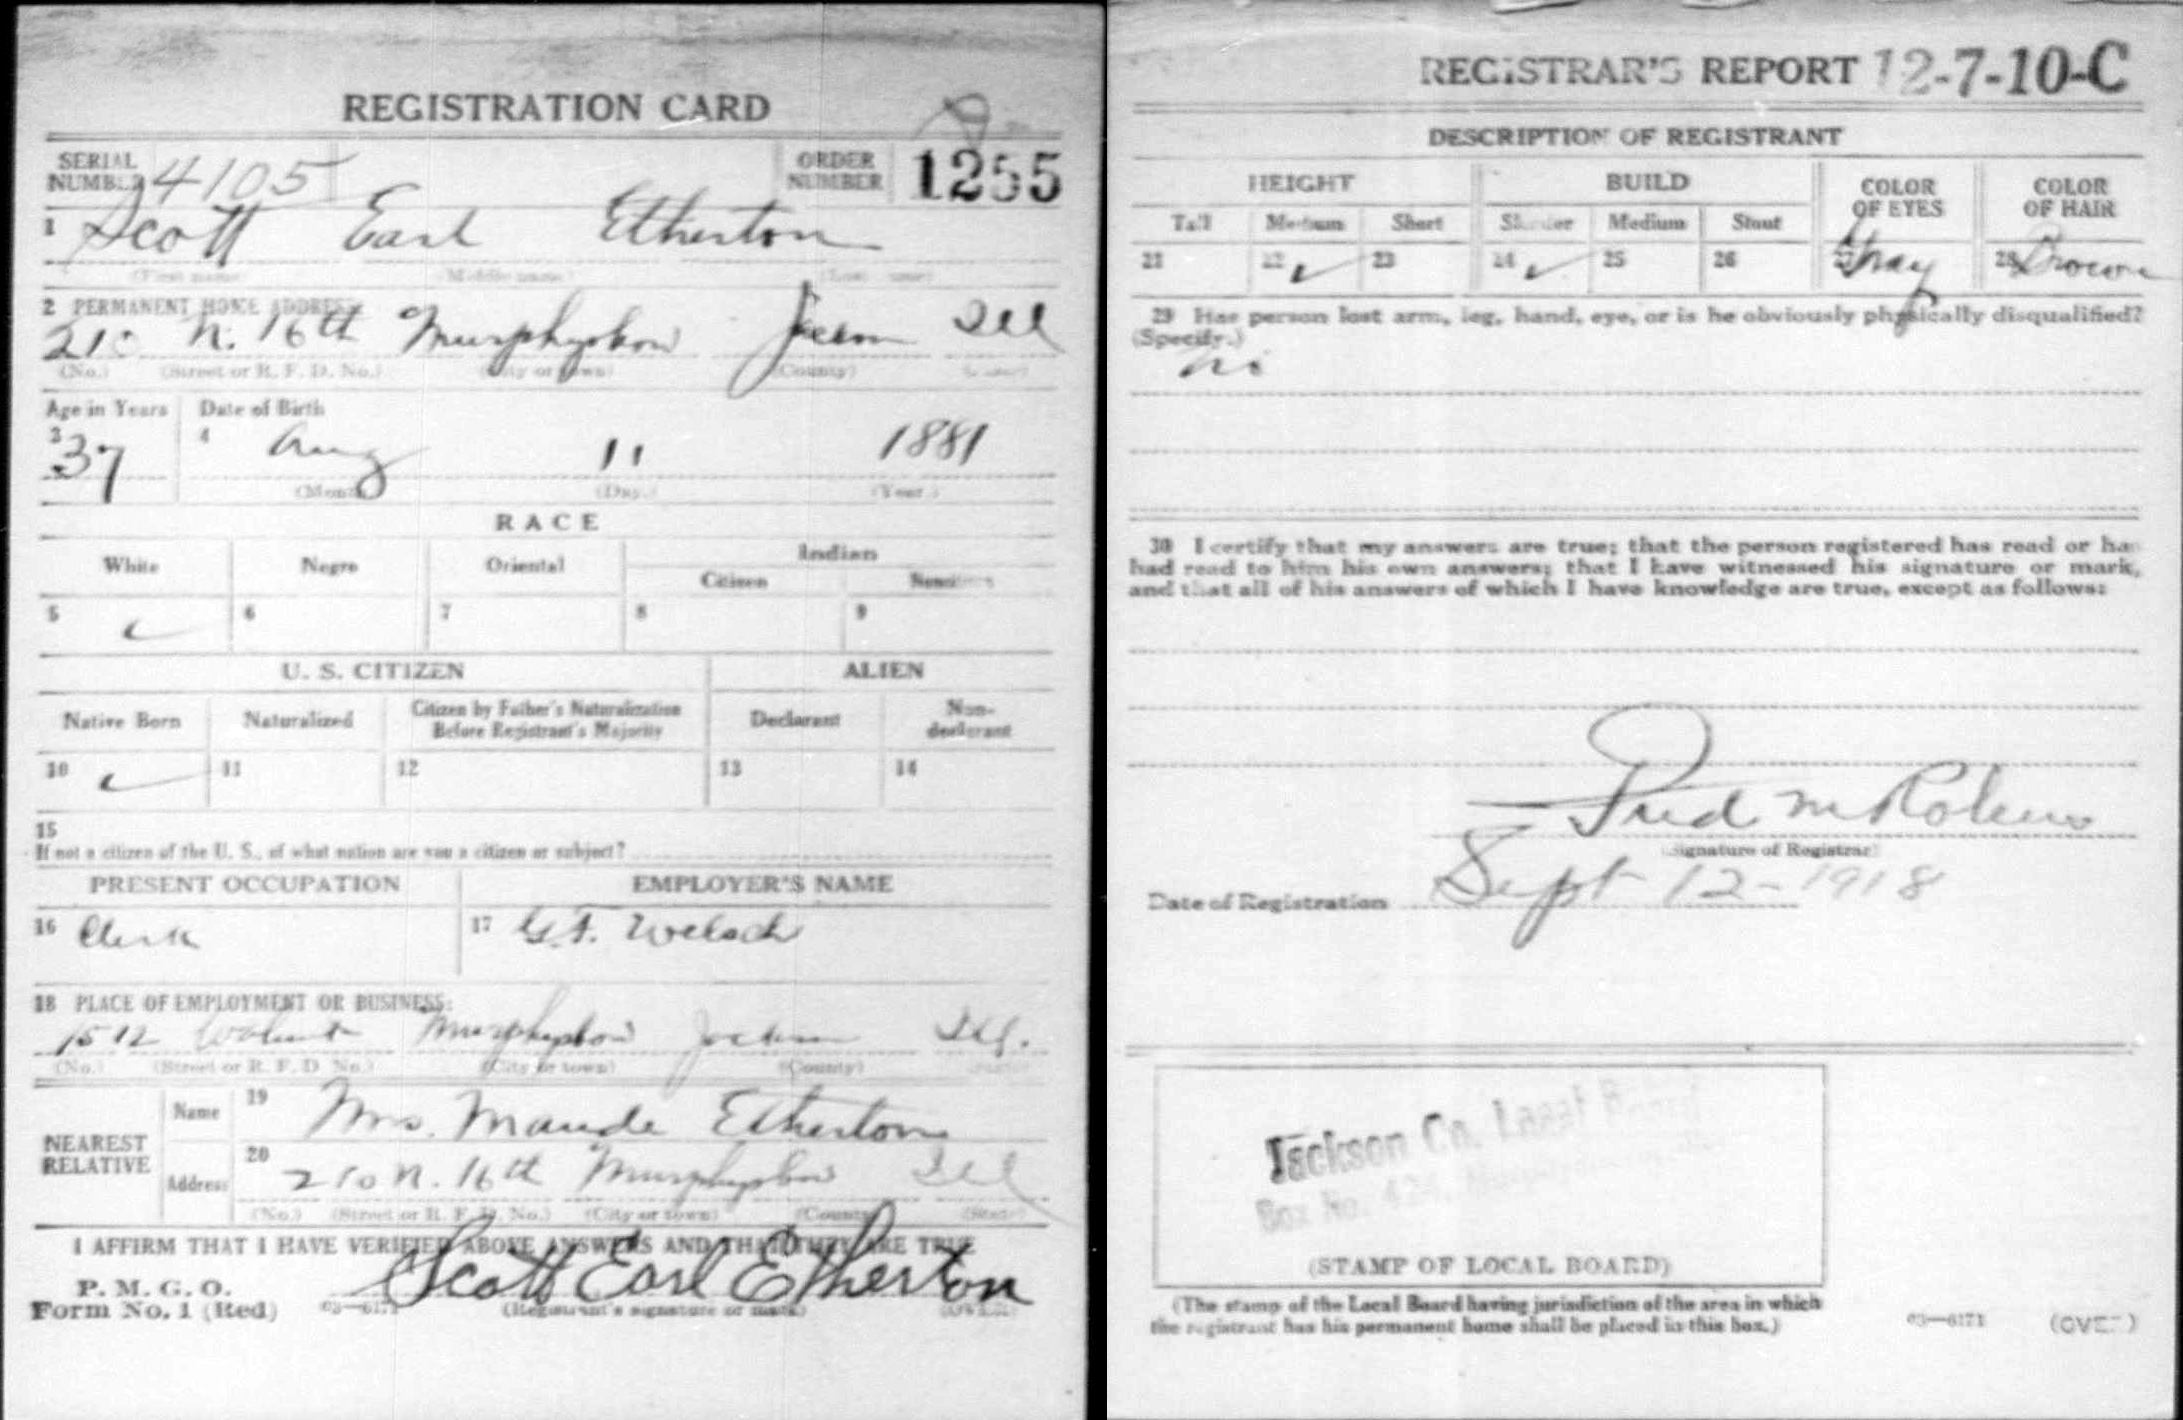 REGISTRATION CARD
SERIAL NUMBER 4105
ORDER NUMBER 1255
1 Scott Earl Etherton
(First name) (Middle name) (Last name)
2 PERMANENT HOME ADDRESS:
210 N. 16th Murphysboro Jackson Ill
(No.) (Street or R. F. D. No.) (City or town) (County) (State)
Age in Years Date of Birth
3 37 4 Aug 11 1881
(Month.) (Day.) (Year.)
RACE
White Negro Oriental Indian
Citizen Noncitizen
5 ✓ 6 7 8 9
U. S. CITIZEN ALIEN
Native Born Naturalized Citizen by Father's Naturalization Before Registrant's Majority Declarant Non-declarant
10 ✓ 11 12 13 14
15
If not a citizen of the U. S., of what nation are you a citizen or subject?
PRESENT OCCUPATION EMPLOYER'S NAME
16 Clerk 17 G.F. Welsch
18 PLACE OF EMPLOYMENT OR BUSINESS:
1512 Walnut Murphysboro Jackson Ill.
(No.) (Street or R. F. D. No.) (City or town) (County) (State)
NEAREST RELATIVE
Name 19 Mrs. Maude Etherton
Address 20 210 N. 16th Murphysboro Ill
(No.) (Street or R. F. D. No.) (City or town) (County) (State)
I AFFIRM THAT I HAVE VERIFIED ABOVE ANSWERS AND THAT THEY ARE TRUE
P. M. G. O.
Form No. 1 (Red) 03—6171 Scott Earl Etherton
(Registrant's signature or mark) (OVER)
REGISTRAR'S REPORT 12-7-10-C
DESCRIPTION OF REGISTRANT
HEIGHT BUILD COLOR OF EYES COLOR OF HAIR
Tall Medium Short Slender Medium Stout
21 22 ✓ 23 24 ✓ 25 26 27 Gray 28 Brown
29 Has person lost arm, leg, hand, eye, or is he obviously physically disqualified?
(Specify.)
No
30 I certify that my answers are true; that the person registered has read or has
had read to him his own answers; that I have witnessed his signature or mark,
and that all of his answers of which I have knowledge are true, except as follows:
Fred M
(Signature of Registrar)
Date of Registration Sept 12-1918
Jackson Co. Local Board
Box No. 424,
(STAMP OF LOCAL BOARD)
(The stamp of the Local Board having jurisdiction of the area in which
the registrant has his permanent home shall be placed in this box.)
03—6171 (OVER)